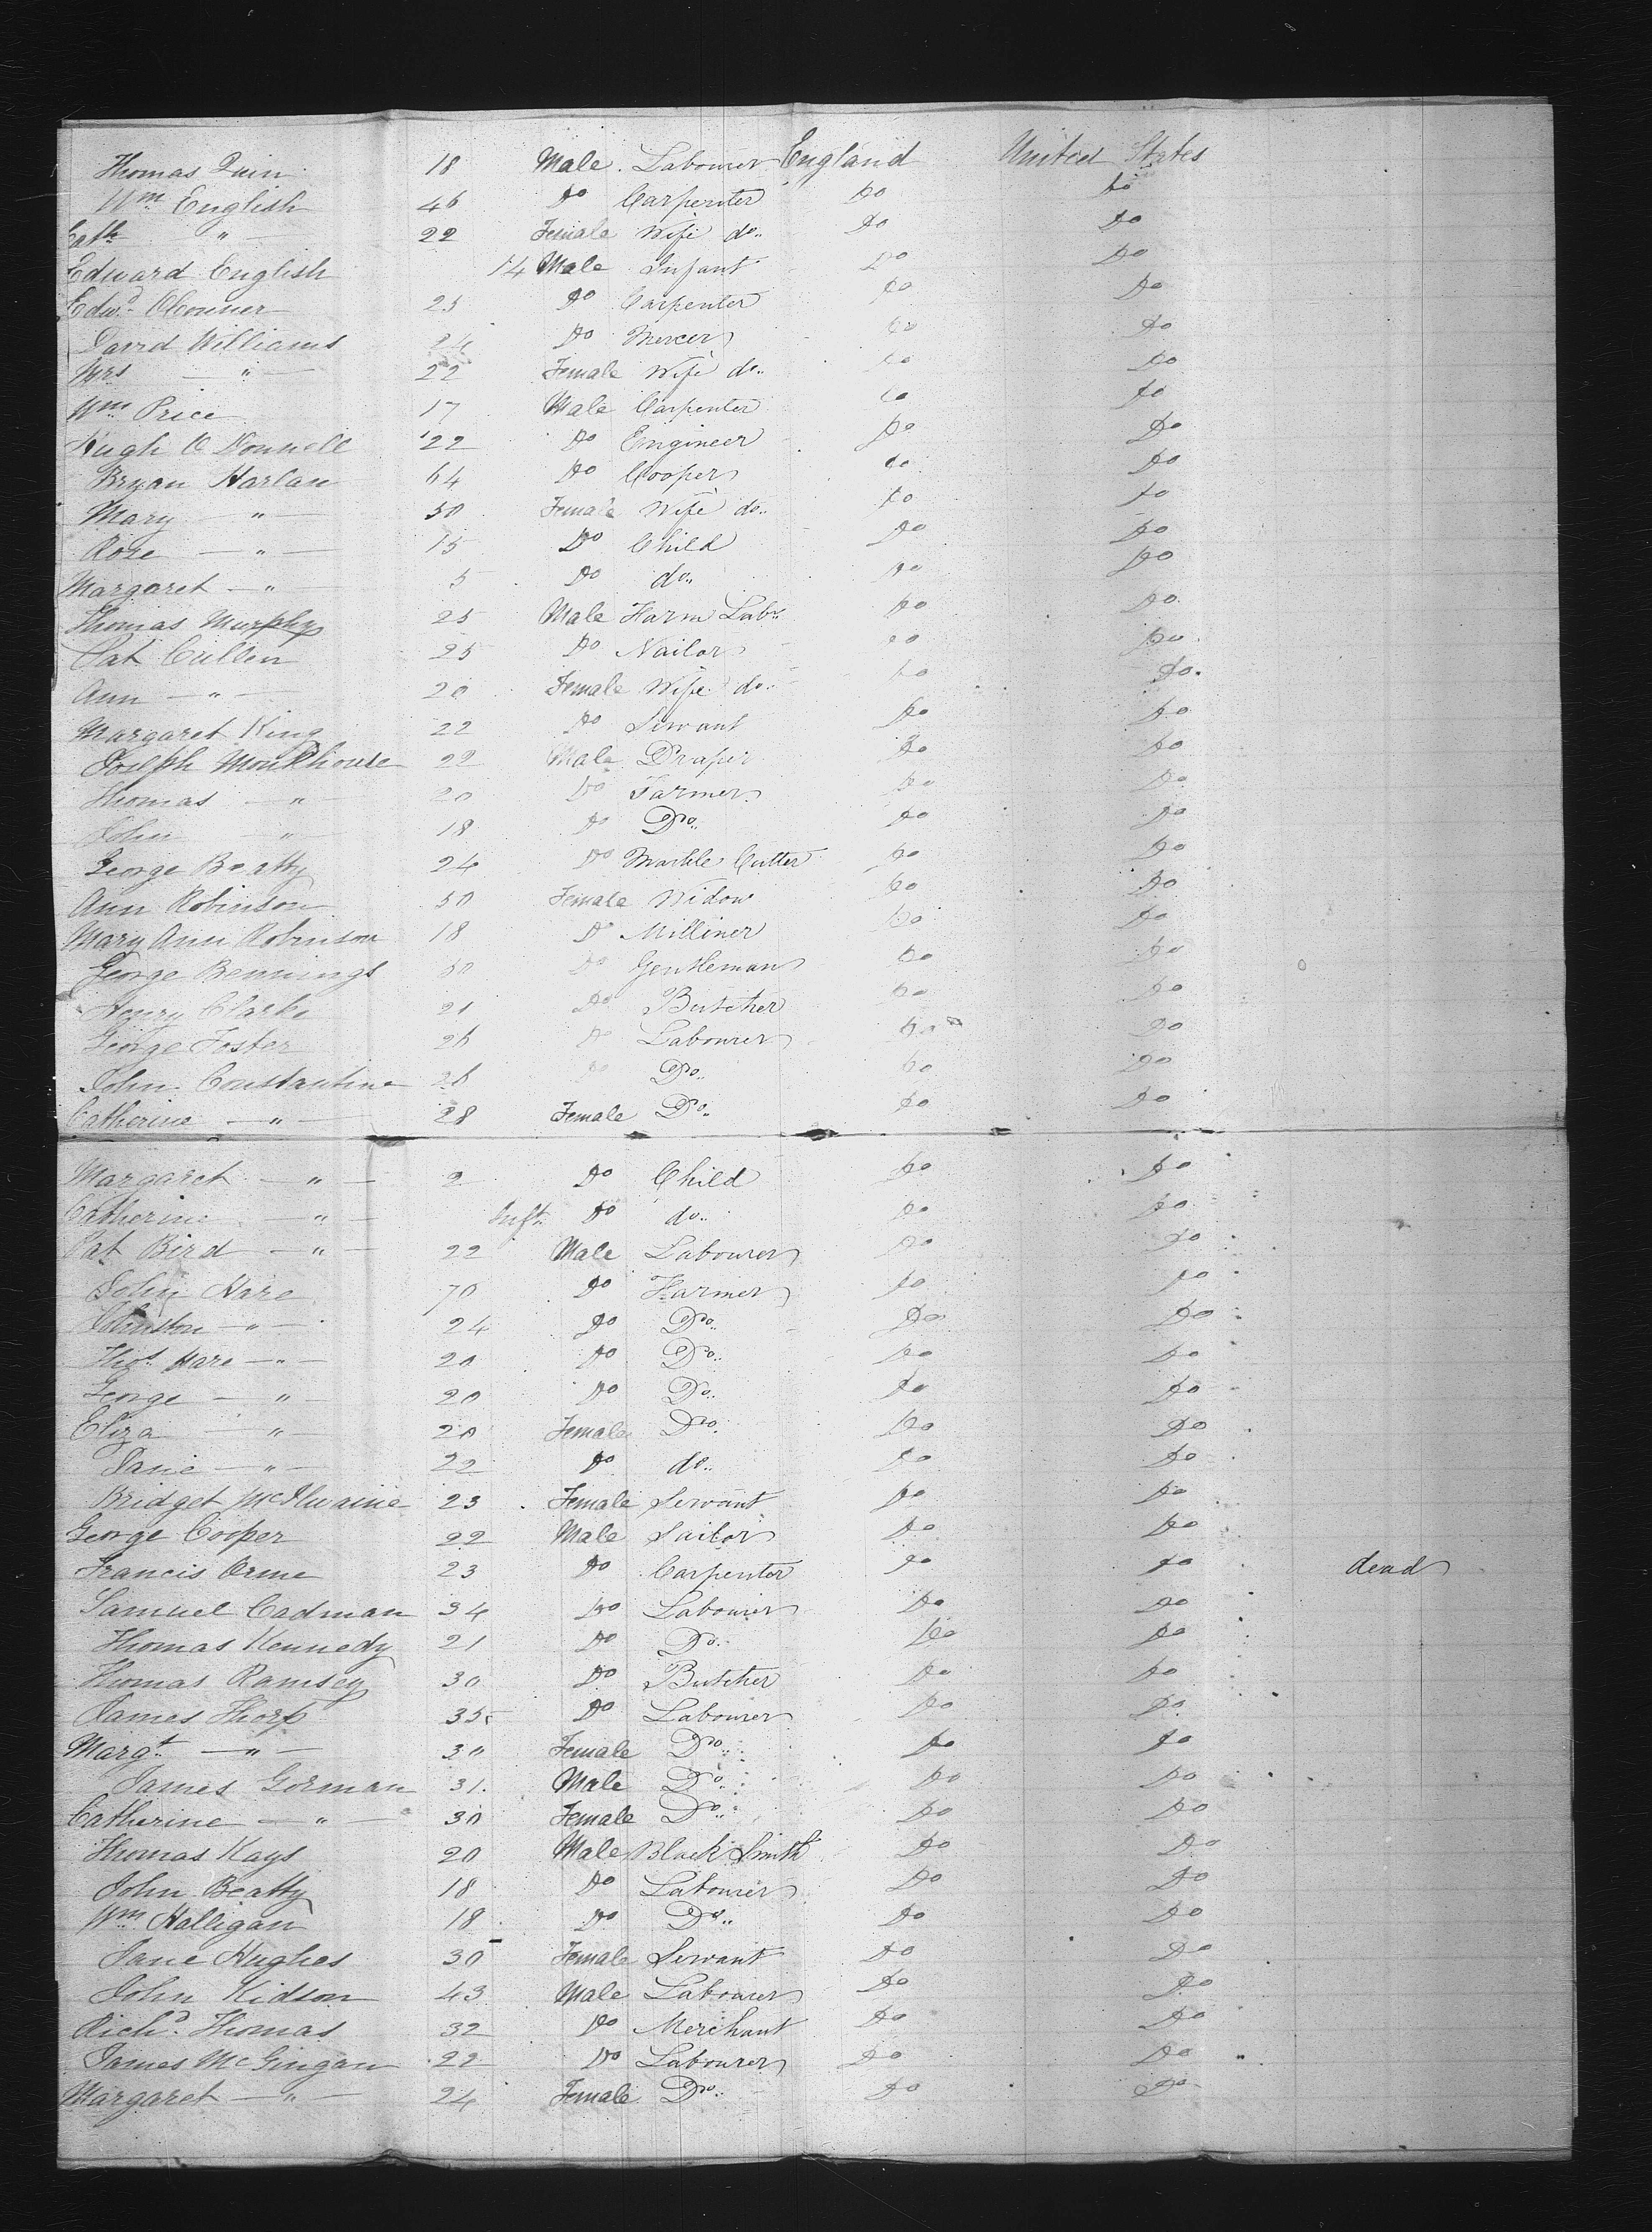 Thomas Quin 18 Male Labourer England United States
Wm English 46 Do Carpenter Do Do
Cath " 22 Female Wife do Do Do
Edward English 14 Male Infant Do Do
Edwd OConner 25 Do Carpenter Do Do
David Williams 24 Do Mercer Do Do
Mrs " 22 Female Wife do Do Do
Wm Price 17 Male Carpenter Do Do
Hugh O Donnell 22 Do Engineer Do Do
Bryan Harlan 64 Do Cooper do Do
Mary " 50 Female Wife do Do Do
Rose " 15 Do Child Do Do
Margaret " 5 Do do Do Do
Thomas Murphy 25 Male Farm Labr Do Do
Pat Cullen 25 Do Nailor Do Do
Ann " 20 Female Wife do Do Do
Margaret King 22 Do Servant Do Do
Joseph Monkhouse 22 Male Draper Do Do
Thomas " 20 Do Farmer Do Do
John " 18 Do Do Do Do
George Beatty 24 Do Marble Cutter Do Do
Ann Robinson 50 Female Widow Do Do
Mary Ann Robinson 18 Do Milliner Do Do
George Bennings 50 Do Gentleman Do Do
Henry Clarke 21 Do Butcher Do Do
George Foster 26 Do Labourer Do Do
John Constantine 26 Do Do Do Do
Catherine " 28 Female Do Do Do
Margaret " 2 Do Child Do Do
Catherine " Inft Do do Do Do
Pat Bird " 22 Male Labourer Do Do
John Hare 70 Do Farmer Do Do
Johnston " 24 Do Do Do Do
Thos Hare " 20 Do Do Do Do
George " 20 Do Do Do Do
Eliza " 20 Female Do Do Do
Jane " 22 Do do Do Do
Bridget McIlwaine 23 Female Servant Do Do
George Cooper 22 Male Sailor Do Do
Francis Orme 23 Do Carpenter Do Do dead
Samuel Cadman 34 Do Labourer Do Do
Thomas Kennedy 21 Do Do Do Do
Thomas Ramsey 30 Do Butcher Do Do
James Thorp 35 Do Labourer Do Do
Margt " 30 Female Do Do Do
James Gorman 31 Male Do Do Do
Catherine " 30 Female Do Do Do
Thomas Kays 20 Male Black Smith Do Do
John Beatty 18 Do Labourer Do Do
Wm Halligan 18 Do Do Do Do
Jane Hughes 30 Female Servant Do Do
John Kidson 43 Male Labourer Do Do
Richd Thomas 32 Do Merchant Do Do
James McGingan 22 Do Labourer Do Do
Margaret " 24 Female Do Do Do